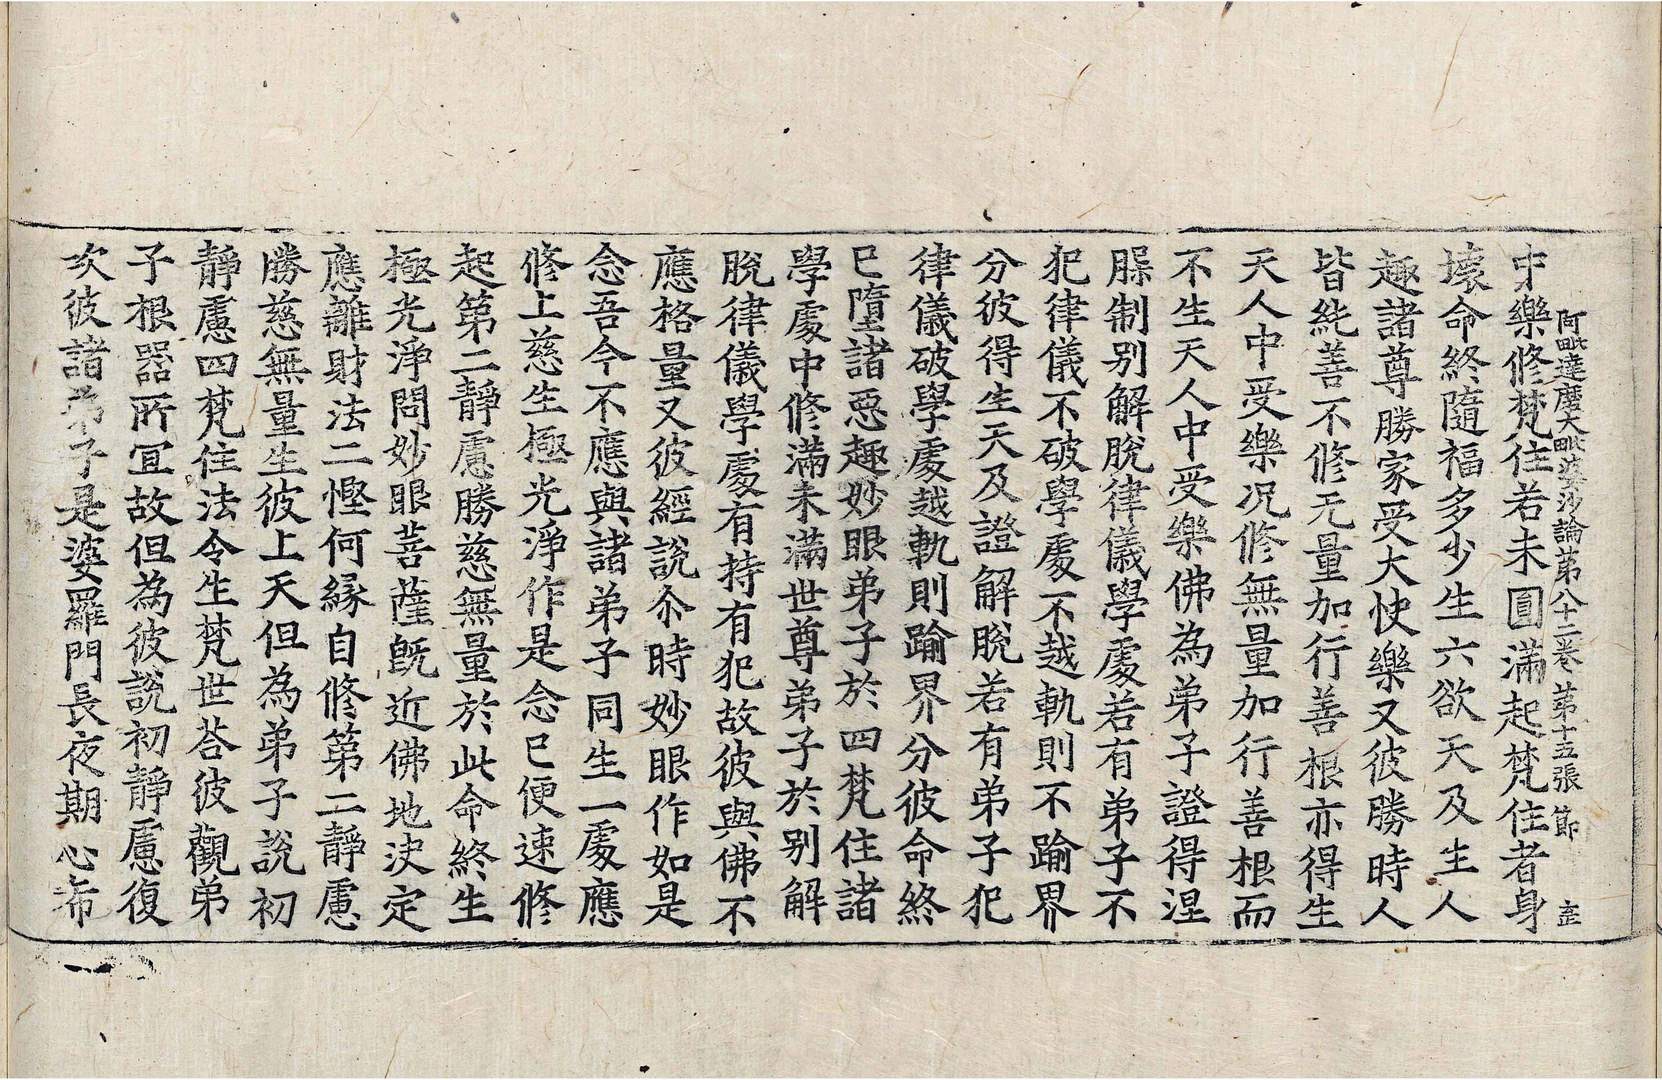 阿毗達磨大毗婆沙論第八十二卷 第十五張 節 㱏
中樂修梵住若未圓滿起梵住者身
壞命終隨福多少生六欲天及生人
趣諸尊勝家受大快樂又彼勝時人
皆純善不修无量加行善根亦得生
天人中受樂况修無量加行善根而
不生天人中受樂佛為弟子證得涅
臊制別解脫律儀學處若有弟子不
犯律儀不破學處不越軌則不踰界
分彼得生天及證解脫若有弟子犯
律儀破學處越軌則踰界分彼命終
已墮諸惡趣妙眼弟子於四梵住諸
學處中修滿未滿世尊弟子於別解
脫律儀學處有持有犯故彼與佛不
應格量又彼經說尒時妙眼作如是
念吾今不應與諸弟子同生一處應
修上慈生極光淨作是念已便速修
起第二靜慮勝慈無量於此命終生
極光淨問妙眼菩薩旣近佛地決定
應離財法二慳何緣自修第二靜慮
勝慈無量生彼上天但為弟子說初
靜慮四梵住法令生梵世荅彼觀弟
子根器所宜故但為彼說初靜慮復
次彼諸弟子是婆羅門長夜期心希